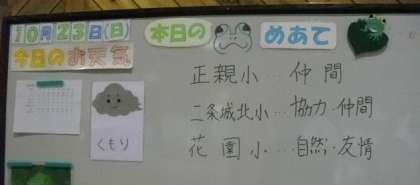 10月23日(日)
本日の めあて
今日のお天気
くもり
正親小…仲間
二条城北小…協力・仲間
花園小…自然・友情